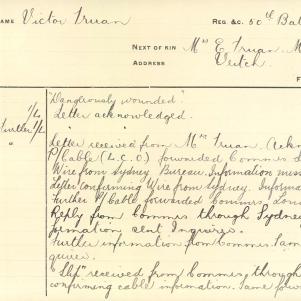 NAME Victor Truan REG &c. 50th Bat
NEXT OF KIN Mrs E. Truan. M
ADDRESS Veitch.
F
"Dangerously wounded"
1/L Letter acknowledged.
Further 1/L
" Letter received from Mrs Truan. Ackn
P/Cable (L.C.O.) forwarded Commrs L
Wire from Sydney Bureau. Information mus
Letter confirming Wire from Sydney. Informa
Further P/Cable forwarded Commrs. Lon
Reply from Commrs through Sydney
formation sent Inquirers.
Further information from Commrs. Sam
quirers.
"Slip" received from Commrs, through
confirming cable information. Same forw